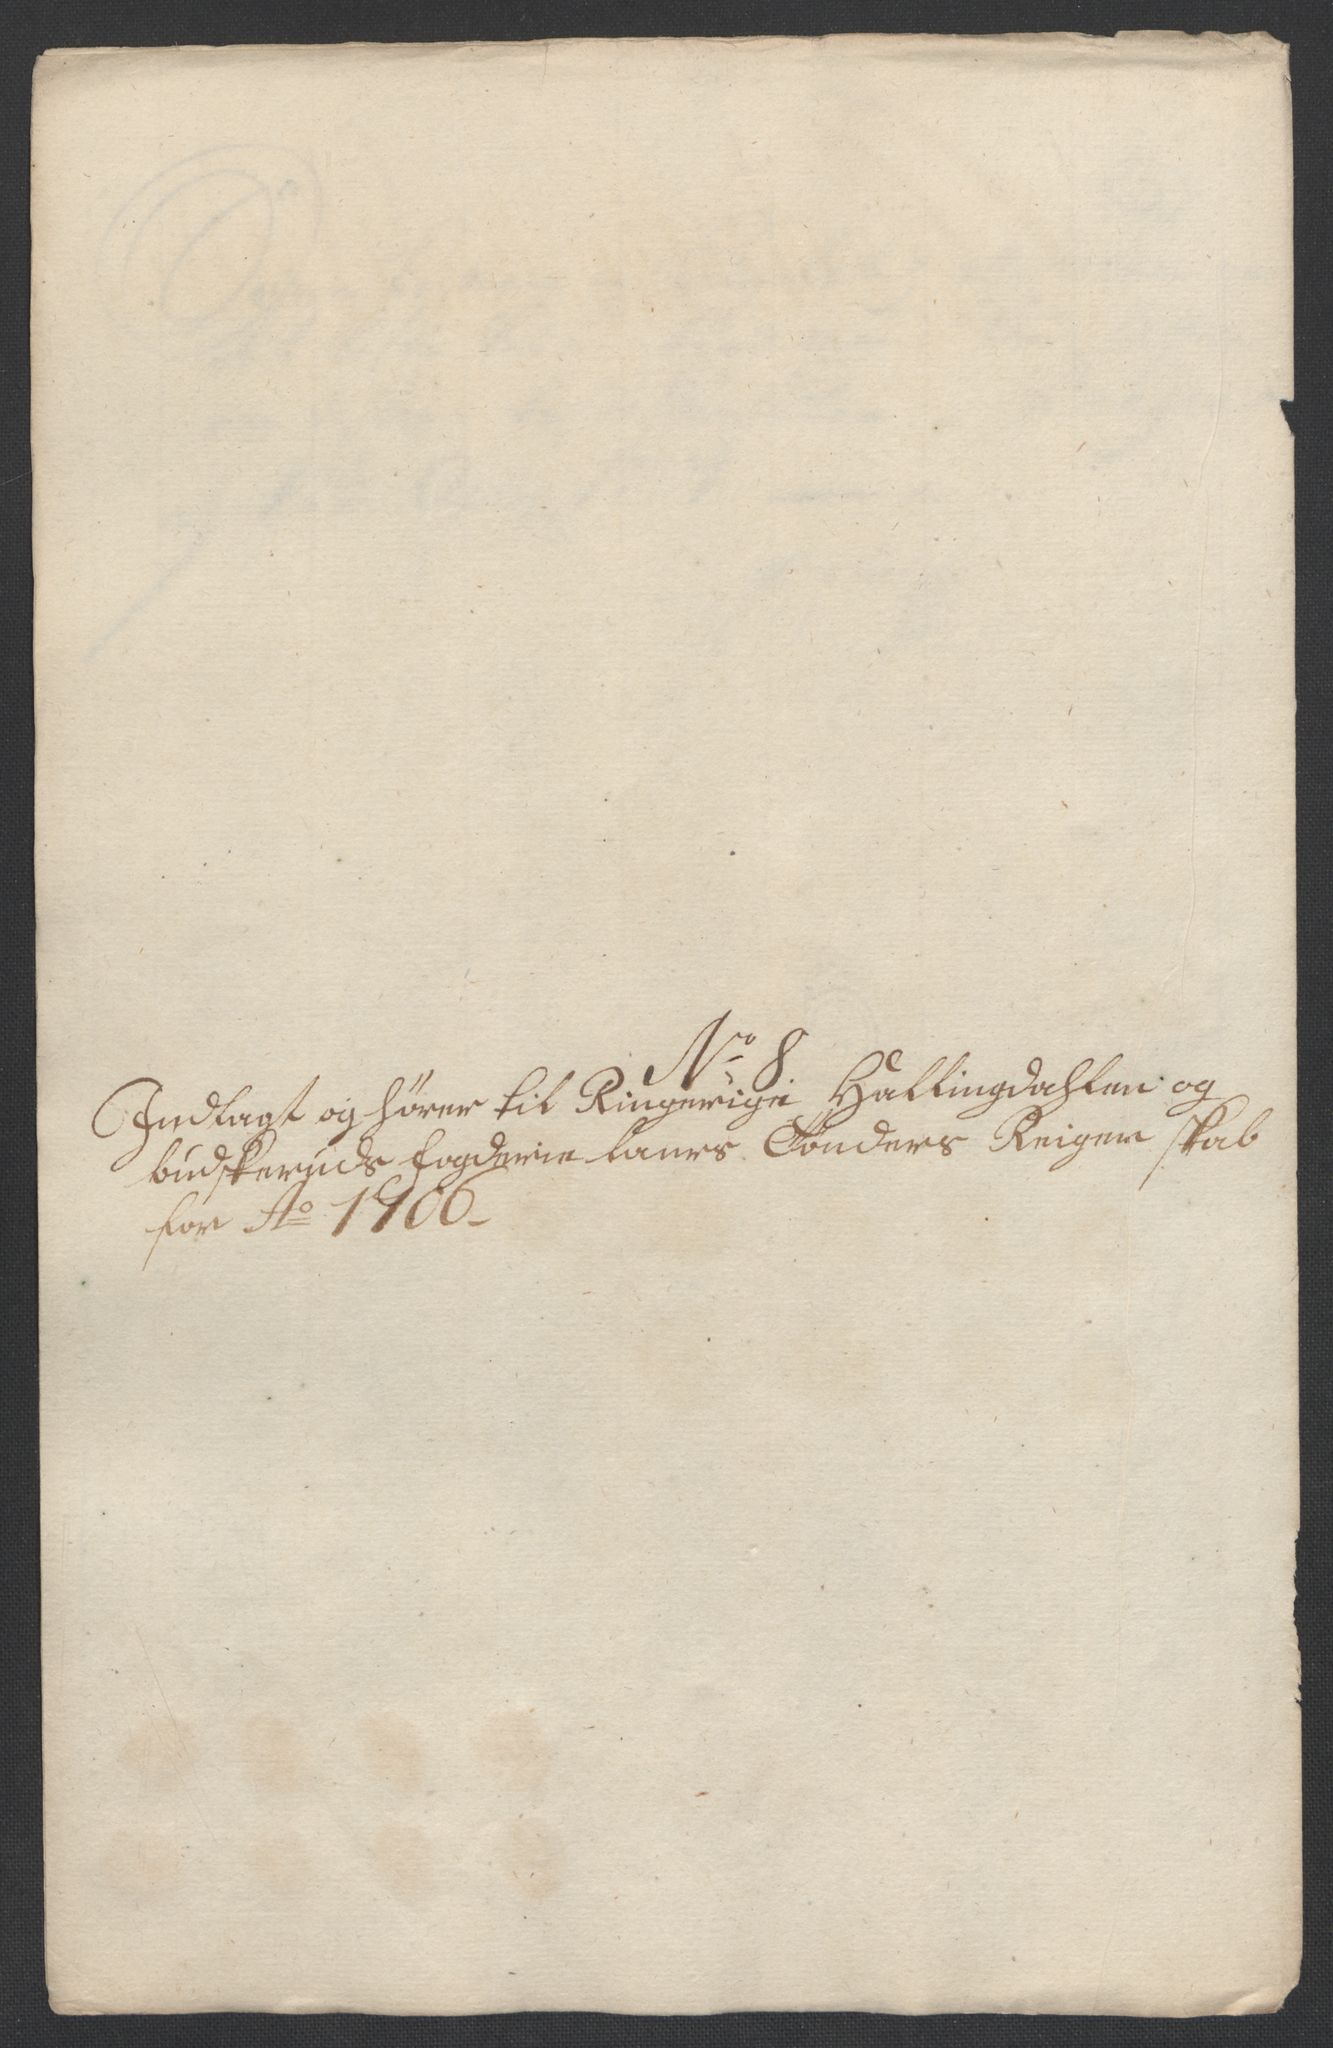 No 8
Indlagt og hörer til Ringerige Hallingdahlen og
budskeruds fogderie Laurs Tönders Reigen skab
for Ao 1706